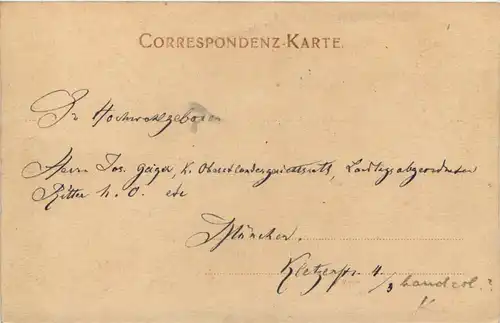 CORRESPONDENZ-KARTE.
Sr Hochwohlgeboren
Herrn Jos. Geiger, K. Oberstlandesgerichtsrats, Landtagsabgeordneten
Ritter h. O. etc
München.
4
/3 handcol.?